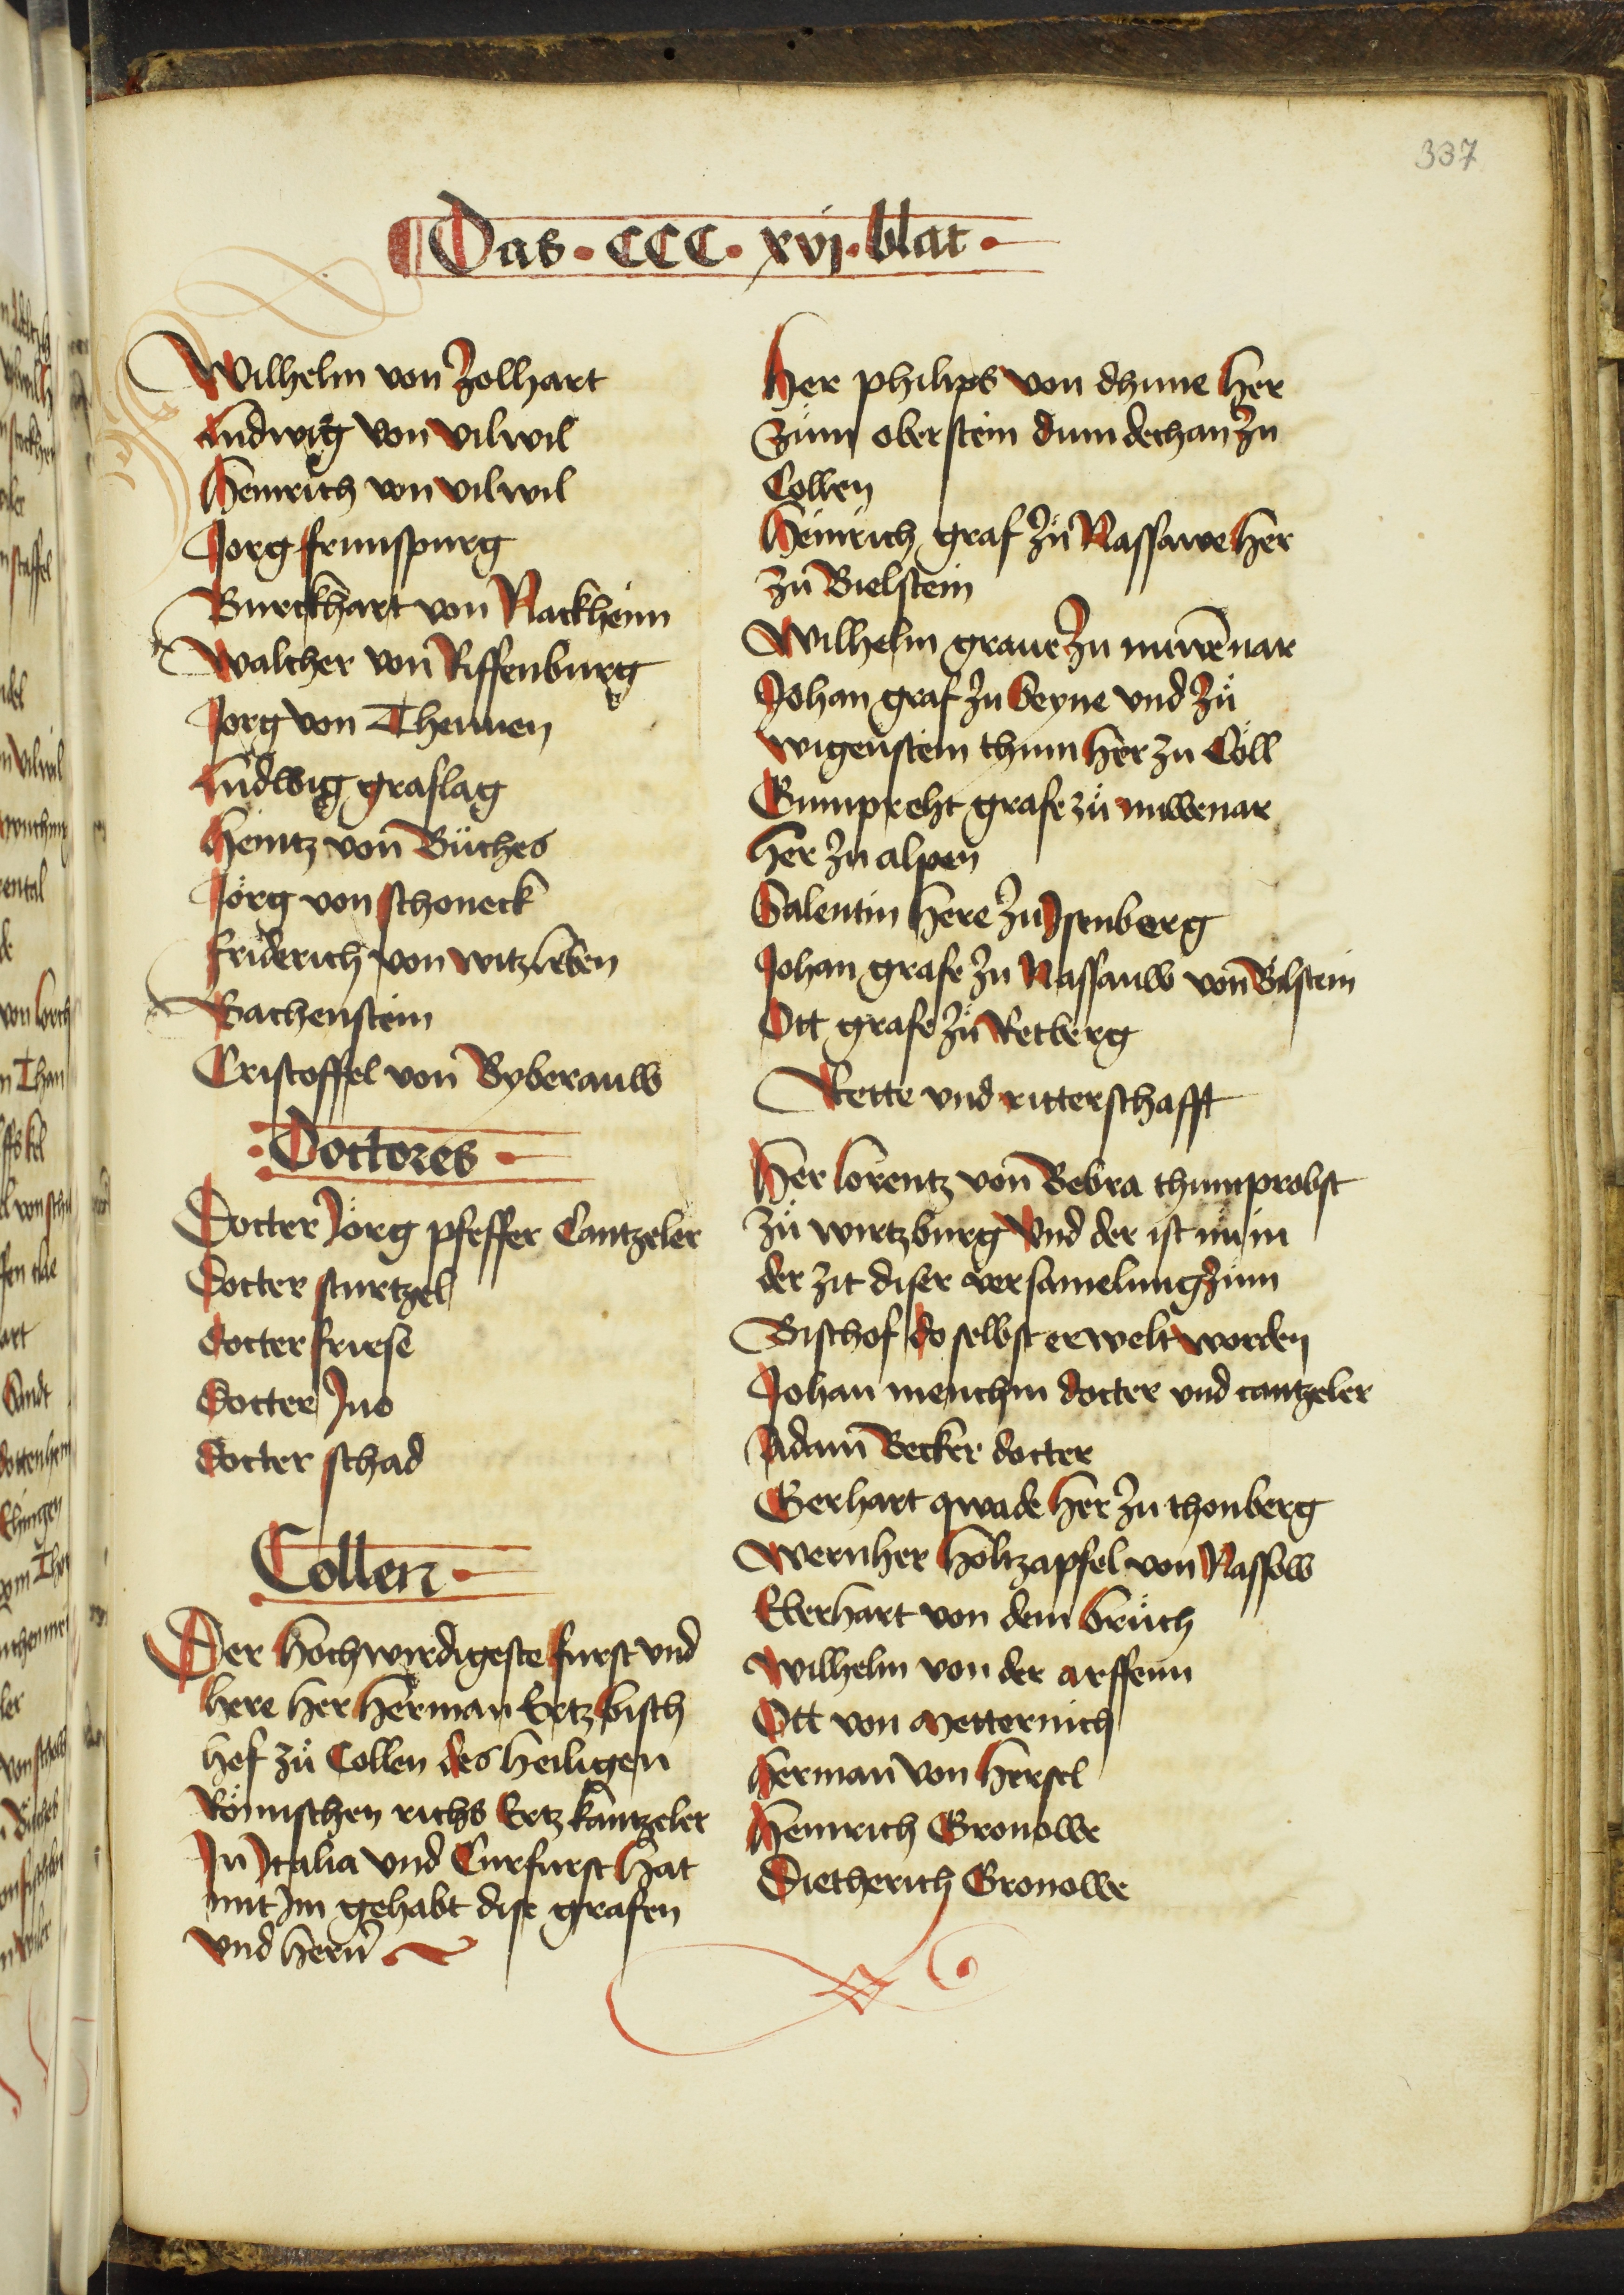 337
Das · CCC · xvj · blat ·
Wilhelm von Zolhart
Ludwig von vilwil
Heinrich von vilwil
Jorg frunspurg
Burckhart von Nackheim
Walther von Riffenburg
Jorg von Themen
Ludwig graslag
Heintz von Büches
Jörg von schoneck
friderich von witzleben
Bachenstein
Cristoffel von Byberauw
Doctores ·
Docter Jörg pfeffer Cantzeler
Docter sturtzel
docter friese
Docter Juo
Docter schad
Collen ·
Der hochwirdigeste furst vnd
here her herman Ertz bisch
hof zů Collen des heiligen
Römischen richs Ertz kantzeler
Jn Jtalia vnd Curfurst hat
mit Jm gehabt dise grafen
vnd hern
Her philips von dhune her
zům oberstein dum dechan zu
Collen
Heinrich graf zů Nassawe her
zu Bielstein
Wilhelm graue zu nuwēnar
Johan graf zu seyne vnd zů
wigenstein thum her zu Cöll
Gumpreht grafe zů nuwenar
her zu alpen
Salentin here zu Jsenberg
Johan grafe zu Nassauw von Bilstein
Ott grafe zů Retberg
Rette vnd ritterschafft
Her lorentz von Bebra thumprobst
zů wirtzburg Vnd der ist nů in
der zit diser versamelung zum
Bischof do selbst erwelt worden
Johan menchin docter vnd cantzeler
Adam Becker docter
Gerhart qwade her zu thonberg
Wernher holtzapfel von Nassow
Eberhart von dem brůch
Wilhelm von der arffenn
Ott von Metternich
herman von hersel
Heinrich Gronowe
Dietherich Gronowe